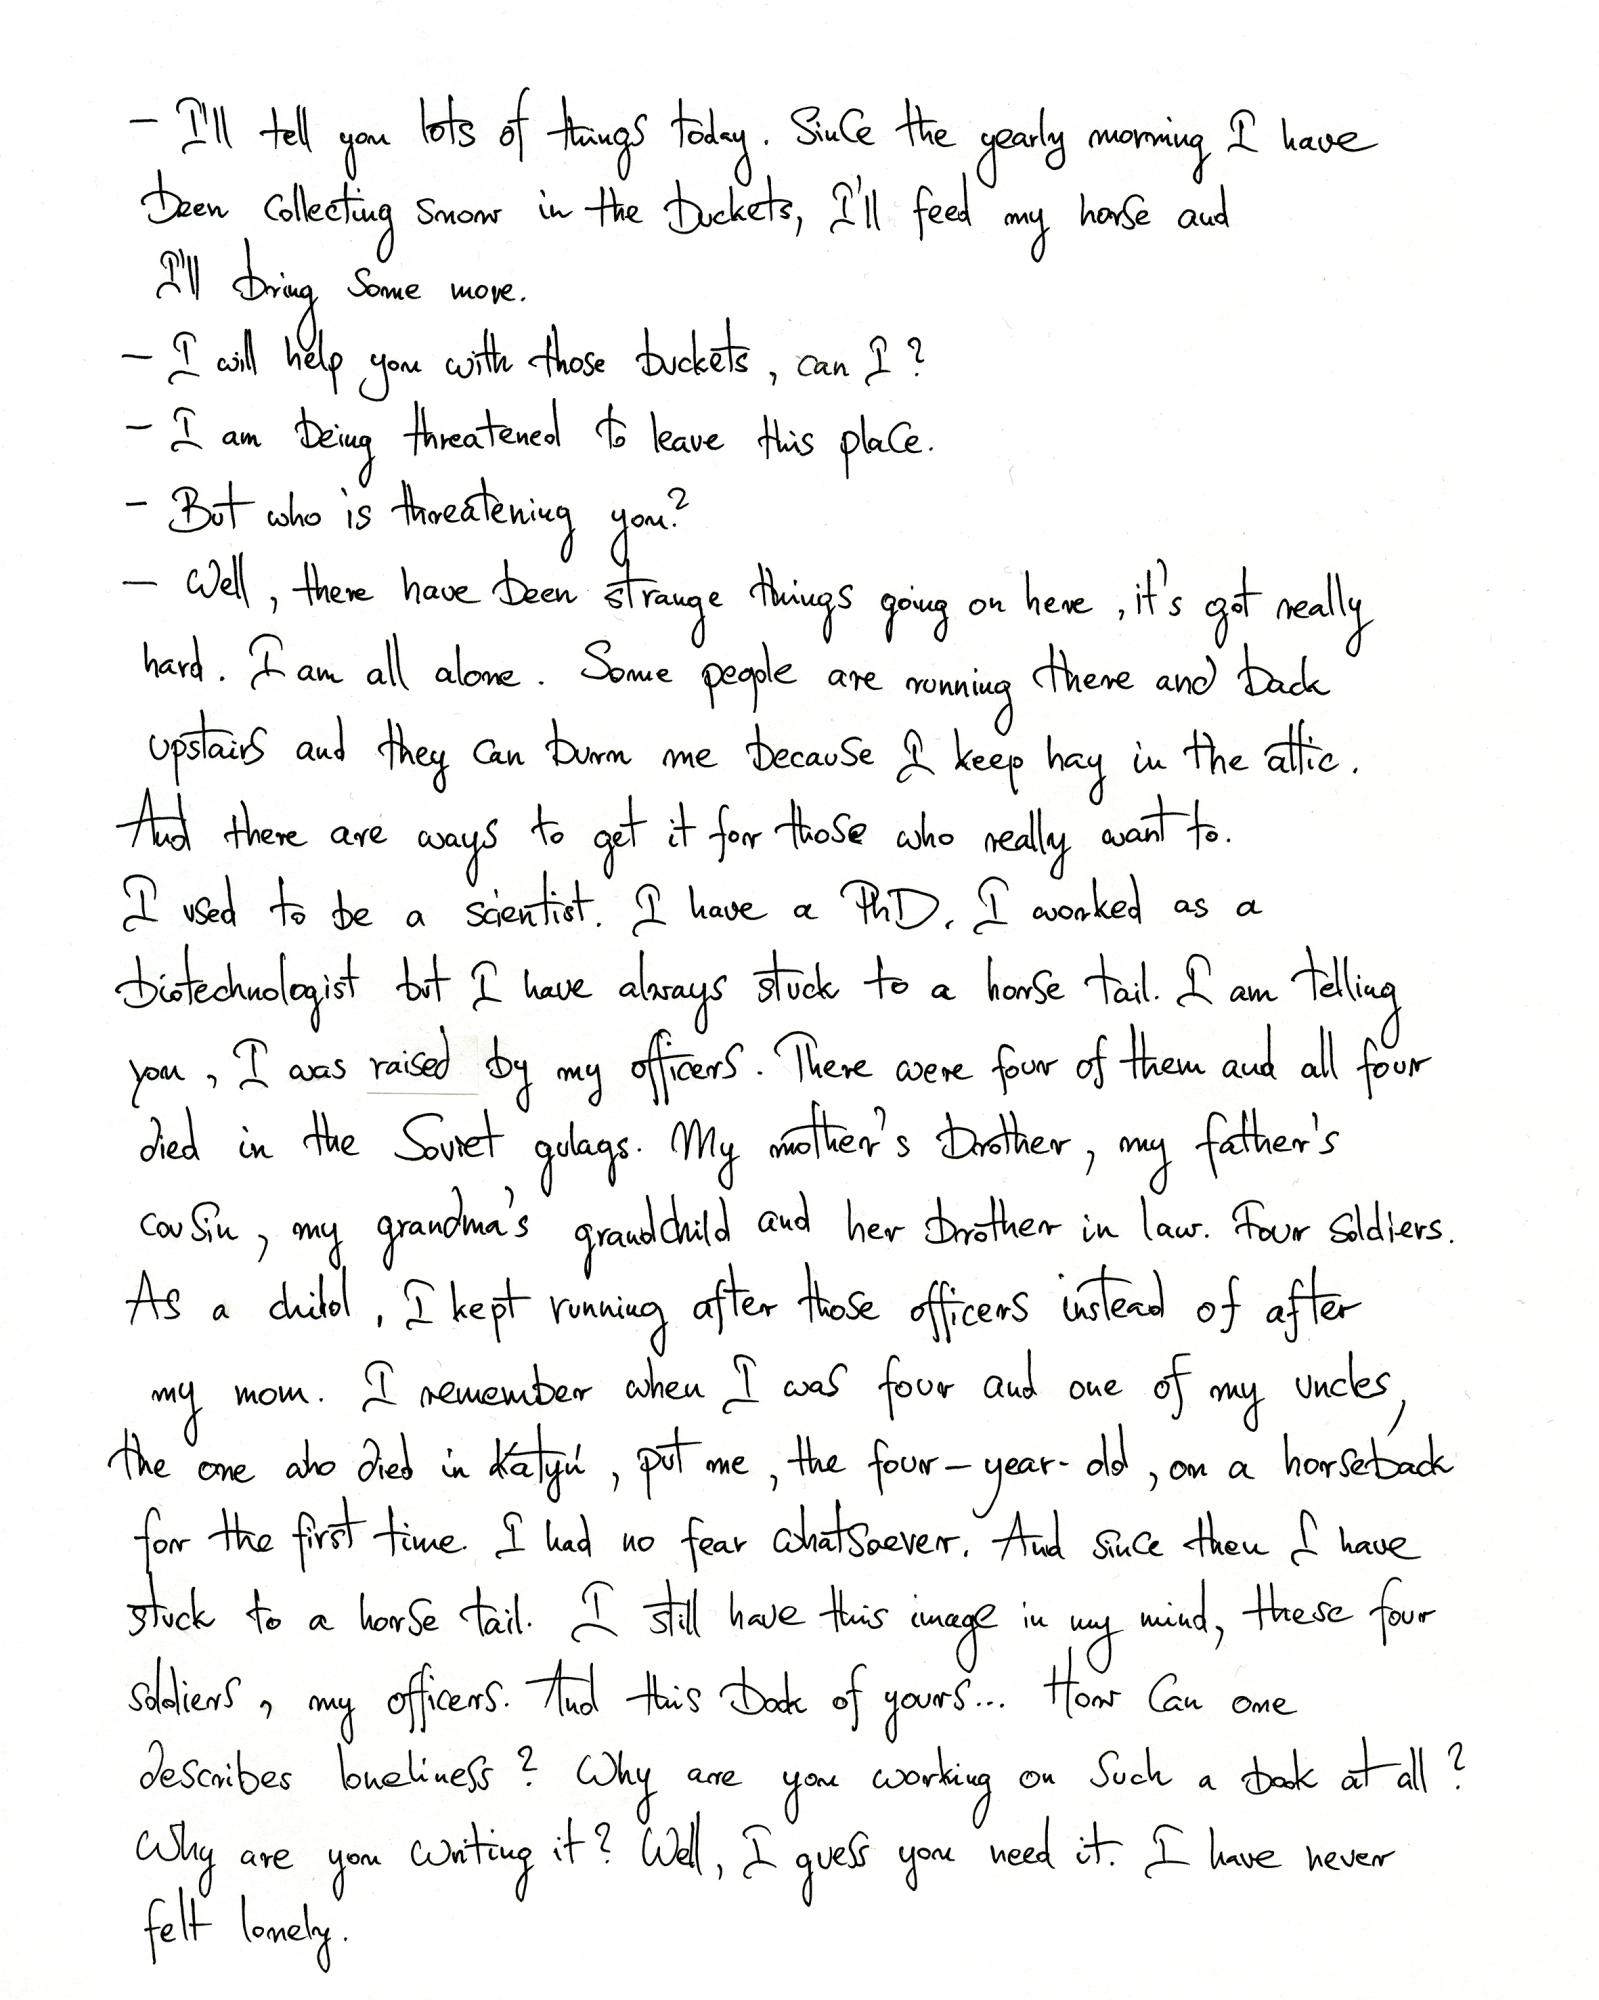 – I'll tell you lots of things today. Since the yearly morning I have
been collecting snow in the buckets, I'll feed my horse and
I'll bring some more.
– I will help you with those buckets, can I?
– I am being threatened to leave this place.
– But who is threatening you?
– Well, there have been strange things going on here, it's got really
hard. I am all alone. Some people are running there and back
upstairs and they can burn me because I keep hay in the attic.
And there are ways to get it for those who really want to.
I used to be a scientist. I have a PhD. I worked as a
biotechnologist but I have always stuck to a horse tail. I am telling
you, I was raised by my officers. There were four of them and all four
died in the Soviet gulags. My mother's brother, my father's
cousin, my grandma's grandchild and her brother in law. Four soldiers.
As a child, I kept running after those officers instead of after
my mom. I remember when I was four and one of my uncles,
the one who died in Katyń, put me, the four-year-old, on a horseback
for the first time. I had no fear whatsoever. And since then I have
stuck to a horse tail. I still have this image in my mind, these four
soldiers, my officers. And this book of yours... How can one
describes loneliness? Why are you working on such a book at all?
Why are you writing it? Well, I guess you need it. I have never
felt lonely.